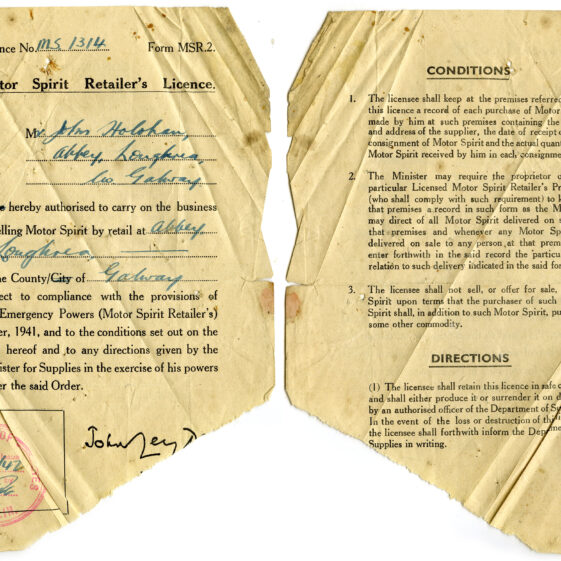 nce No. MS 1314 Form MSR.2.
tor Spirit Retailer's Licence.
Mr John Holohan,
Abbey, Loughrea,
Co Galway
e hereby authorised to carry on the business
elling Motor Spirit by retail at Abbey,
Loughrea,
he County/City of Galway
ect to compliance with the provisions of
Emergency Powers (Motor Spirit Retailer's)
er, 1941, and to the conditions set out on the
hereof and to any directions given by the
ister for Supplies in the exercise of his powers
er the said Order.
John
CONDITIONS
1. The licensee shall keep at the premises referred
this licence a record of each purchase of Motor
made by him at such premises containing the
and address of the supplier, the date of receipt o
consignment of Motor Spirit and the actual quant
Motor Spirit received by him in each consignme
2. The Minister may require the proprietor o
particular Licensed Motor Spirit Retailer's Pr
(who shall comply with such requirement) to k
that premises a record in such form as the M
may direct of all Motor Spirit delivered on s
that premises and whenever any Motor Sp
delivered on sale to any person at that premi
enter forthwith in the said record the particu
relation to such delivery indicated in the said for
3. The licensee shall not sell, or offer for sale,
Spirit upon terms that the purchaser of such
Spirit shall, in addition to such Motor Spirit, pu
some other commodity.
DIRECTIONS
(1) The licensee shall retain this licence in safe c
and shall either produce it or surrender it on d
by an authorised officer of the Department of Su
In the event of the loss or destruction of this l
the licensee shall forthwith inform the Depa
Supplies in writing.